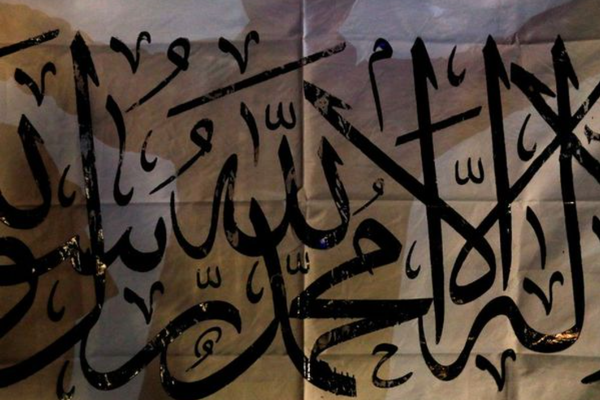 لا إله إلا الله محمد رسول